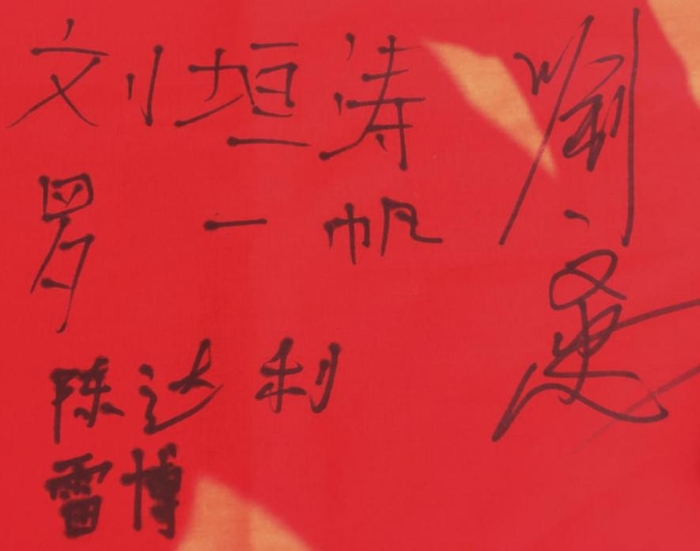 刘垣涛
罗一帆
陈达利
雷博
劉